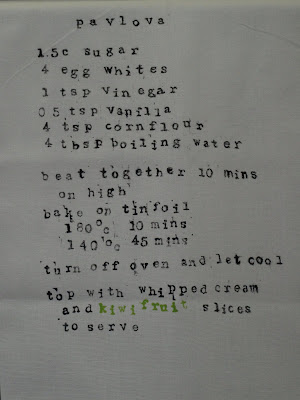 pavlova
1.5c sugar
4 egg whites
1 tsp vinegar
0.5 tsp vanilla
4 tsp cornflour
4 tbsp boiling water
beat together 10 mins
on high
bake on tinfoil
180°c 10 mins
140°c 45 mins
turn off oven and let cool
top with whipped cream
and kiwifruit slices
to serve